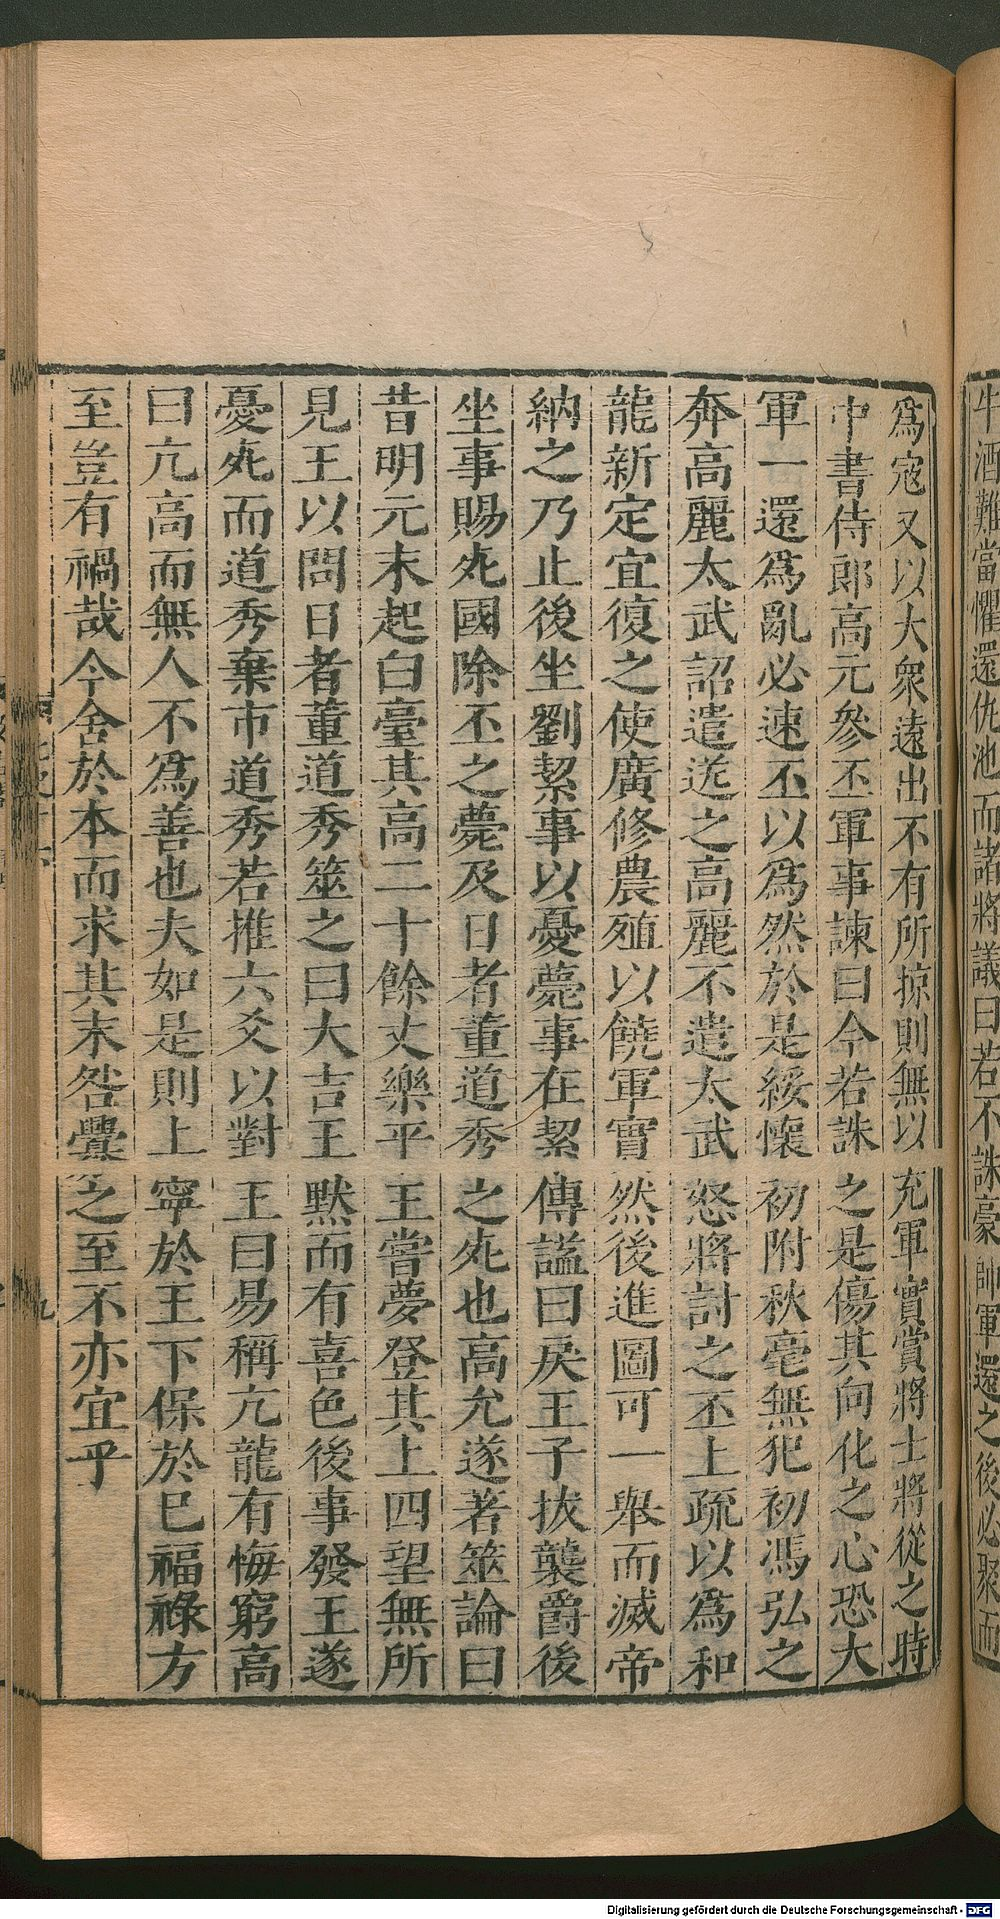 牛酒難當懼還仇池而諸將議曰若不誅豪帥軍還之後必聚而
爲寇又以大衆遠出不有所掠則無以充軍實賞將士將從之時
中書侍郎高元參丕軍事諫曰今若誅之是傷其向化之心恐大
軍一還爲亂必速丕以爲然於是綏懷初附秋毫無犯初馮弘之
奔高麗太武詔遣送之高麗不遣太武怒將討之丕上疏以爲和
龍新定宜復之使廣修農殖以饒軍實然後進圖可一舉而滅帝
納之乃止後坐劉絜事以憂薨事在絜傳謚曰戾王子拔襲爵後
坐事賜死國除丕之薨及日者董道秀之死也高允遂著筮論曰
昔明元末起白臺其高二十餘丈樂平王嘗夢登其上四望無所
見王以問日者董道秀筮之曰大吉王默而有喜色後事發王遂
憂死而道秀棄市道秀若推六爻以對王曰易稱亢龍有悔窮高
曰亢高而無人不爲善也夫如是則上寧於王下保於已福祿方
至豈有禍哉今舍於本而求其末咎釁之至不亦宜乎
九
Digitalisierung gefördert durch die Deutsche Forschungsgemeinschaft - DFG